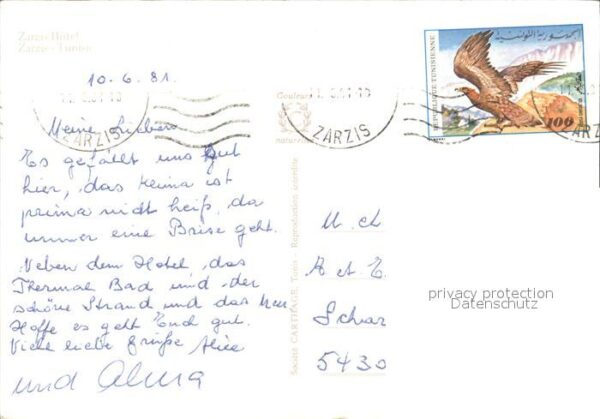 Zarzis - Tunisie
10.6.81.
ZARZIS
ZARZIS
RÉPUBLIQUE TUNISIENNE
الجمهورية التونسية
100
Meine Lieben
Es gefällt uns gut
hier, das Klima ist
prima nicht heiß, da
immer eine Brise geht.
Neben dem Hotel das
Thermal Bad und der
schöne Strand und das Meer
Hoffe es geht Euch gut.
Viele liebe Grüße Alice
und Alma
Société CARTHAGE, Tunis - Reproduction interdite
A et E
5430
privacy protection
Datenschutz